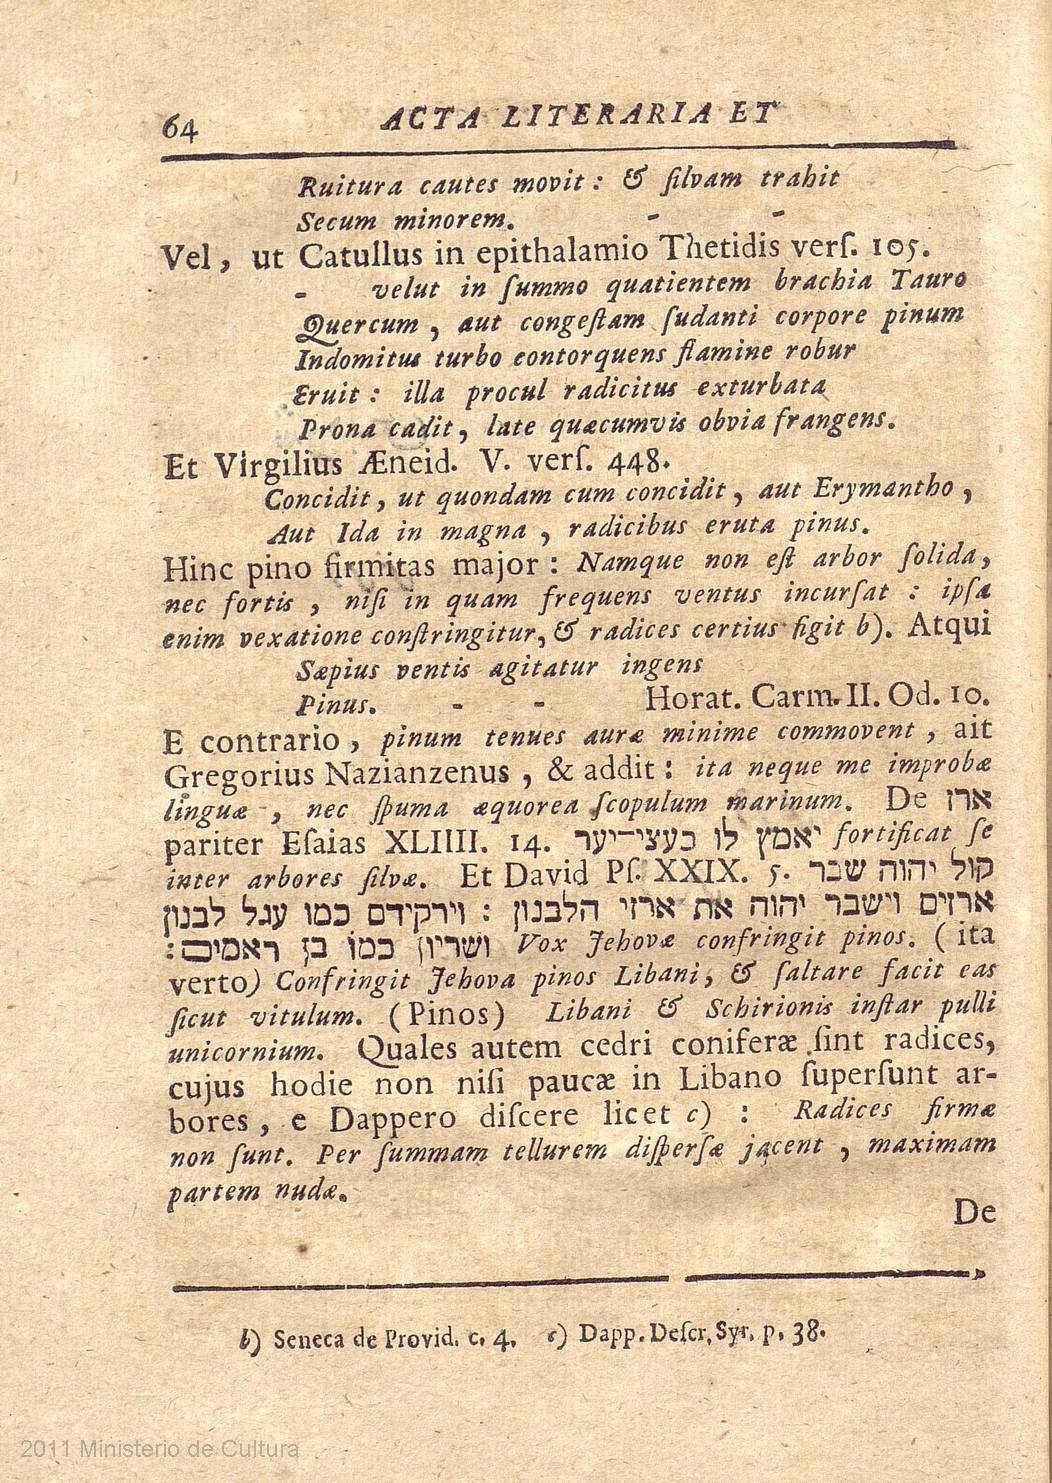 64 ACTA LITERARIA ET
Ruitura cautes movit : & ſilvam trahit
Secum minorem. - -
Vel , ut Catullus in epithalamio Thetidis verſ. 105.
- velut in ſummo quatientem brachia Tauro
Quercum , aut congeſtam ſudanti corpore pinum
Indomitus turbo contorquens flamine robur
Eruit : illa procul radicitus exturbata
Prona cadit , late quæcumvis obvia frangens.
Et Virgilius Æneid. V. verſ. 448.
Concidit , ut quondam cum concidit , aut Erymantho ,
Aut Ida in magna , radicibus eruta pinus.
Hinc pino firmitas major : Namque non eſt arbor ſolida,
nec fortis , niſi in quam frequens ventus incurſat : ipſa
enim vexatione conſtringitur, & radices certius figit b). Atqui
Sæpius ventis agitatur ingens
Pinus. - - Horat. Carm. II. Od. 10.
E contrario , pinum tenues auræ minime commovent , ait
Gregorius Nazianzenus , & addit : ita neque me improbæ
linguæ , nec ſpuma æquorea ſcopulum marinum. De ארז
pariter Eſaias XLIIII. 14. יאמץ לו בעצי־יער fortificat ſe
inter arbores ſilvæ. Et David Pſ. XXIX. 5. קול יהוה שבר
ארזים וישבר יהוה את ארזי הלבנון : וירקידם כמו עגל לבנון
ושריון כמו בן ראמים: Vox Jehovæ confringit pinos. ( ita
verto) Confringit Jehova pinos Libani, & ſaltare facit eas
ſicut vitulum. (Pinos) Libani & Schirionis inſtar pulli
unicornium. Quales autem cedri coniferæ ſint radices,
cujus hodie non niſi paucæ in Libano ſuperſunt ar-
bores , e Dappero diſcere licet c) : Radices firmæ
non ſunt. Per ſummam tellurem diſperſæ jacent , maximam
partem nudæ.
De
b) Seneca de Provid. c. 4. c) Dapp. Deſcr. Syr. p. 38.
2011 Ministerio de Cultura